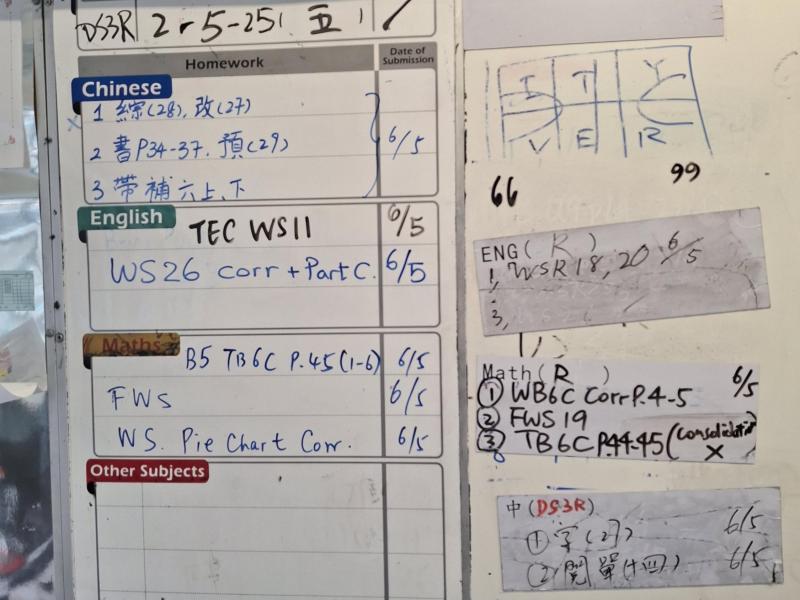 DS3R 2-5-25( 五 )
Homework Date of Submission
Chinese
1 綜(28), 改(27)
2 書P34-37. 預(29) 6/5
3 帶補六上、下
English
TEC WS11 6/5
WS26 corr + Part C. 6/5
Maths
B5 TB6C P.45(1-6) 6/5
FWS 6/5
WS. Pie Chart Corr. 6/5
Other Subjects
I T Y
V E R
66 99
ENG( R )
1, WSR18, 20 6/5
3,
Math( R )
① WB6C Corr P.4-5 6/5
② FWS 19
③ TB6C P.44-45 (consolidation
×
中(DS3R)
① 字(27) 6/5
② 閱單(十四) 6/5